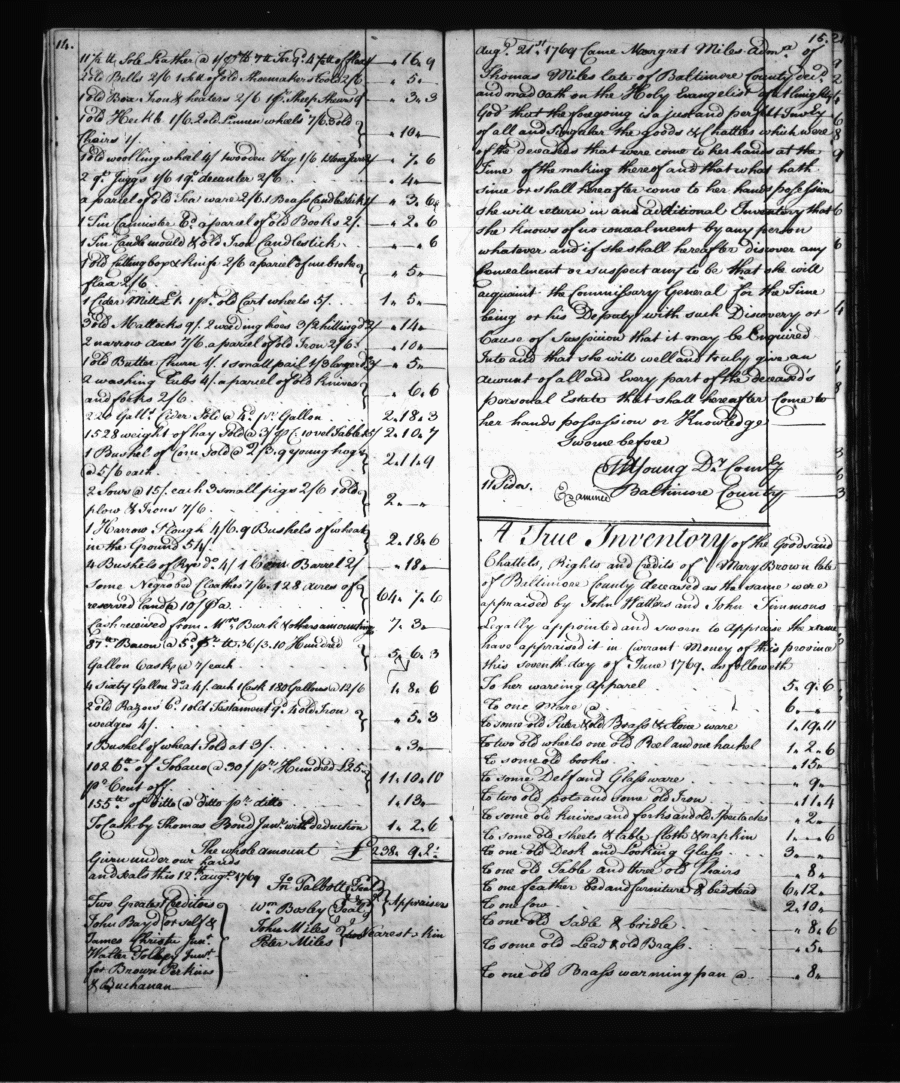 14.
11 1/2 lb Sole Leather @ 1/ pr lb
" 16 " 9
2 old Bells 2/6 1 Sett of old Shoemakers tools 2/6
" 5 "
1 old Box Iron & heaters 2/6 1 pr. Sheep Shears
" 3 " 3
1 old Heckle 1/6. 2 old Linnen wheels 7/6 3 old
Chairs 1/.
" 10 "
1 old woolling wheel 4/ 1 wooden 1/6
" 7 " 6
2 qt. Juggs 1/6 1 qt. decanter 2/6
" 4 "
a parcel of old Tea ware 2/6. 1 Brass Candlestick
" 3 " 6
1 Tin Cannister 6d. a parcel of old Books 2/.
" 2 " 6
1 Tin Candle mould & old Iron Candlestick
" " 6
1 old Cutting box & Knife 2/6 a parcel of unbroke
flax 2/6
" 5 "
1 Cider Mill £1. 1 pr. old Cart wheels 5/.
1 " 5 "
3 old Mattocks 9/. 2 weeding hoes 3/
" 14 "
2 narrow axes 7/6. a parcel of old Iron 2/6
" 10 "
1 old Butter Churn 1/. 1 small pail 1/3
" 5 "
2 washing Tubs 4/. a parcel of old knives
and forks 2/6
" 6 " 6
Galls. Cider Sold @ d. pr. Gallon
2 " 18 " 3
1528 weight of hay Sold @
2 " 10 " 7
1 Bushel of Corn Sold @ 2/3. 9 young hogs
@ 5/6 each
2 " 11 " 9
2 Sows @ 15/. each 3 small pigs 2/6 1 old
plow & Irons 7/6
2 " " "
1 Harrow Plough 4/6. 9 Bushels of wheat
in the Ground 54/.
2 " 18 " 6
4 Bushels of Rye do. 4/ Barrel 2/
" 18 "
Some Negro bed Cloathes 7/6. 128 acres of
reserved land @ 10/ pr a.
64 " 7 " 6
Cash received from Mrs. Burk & others amounting
7 " 3 "
87 lb Bacon @ 5d. pr lb. 36/3. 10 Hundred
Gallon Casks @ 7/ each
5 " 6 " 3
4 Sixty Gallon do. @ 4/. each 1 Cask 180 Gallons @ 12/6
1 " 8 " 6
2 old Razors 6d. 1 old Testament 9d. 4 old Iron
wedges 4/.
" 5 " 3
1 Bushel of wheat Sold at 3/.
" 3 "
1026 lb. of Tobacco @ 30/ pr. Hundred £25
pr. Cent off
11 " 10 " 10
155 lb of Ditto @ Ditto pr. ditto
1 " 13 "
To Cash by Thomas Bond Junr. with deduction
1 " 2 " 6
The whole amount £ 238 " 9 " 2
Given under our hands
and seals this 12th. augt. 1769
Jno. Talbott (Seal)
Wm. Bosley (Seal) } Appraisers
Two Greatest Creditors
John Boyd for self &
James Christie Junr.
Walter Tolley Junr.
for Brown Perkins
& Buchanan
John Miles
Peter Miles } two Nearest kin
15.
Augt. 21st. 1769 Came Margret Miles Admx. of
Thomas Miles late of Baltimore County decd.
and mad oath on the Holy Evangelist of Almighty
God that the foregoing is a just and perfect Invty
of all and Singular the goods & Chattles which were
of the deceaseds that were come to her hands at the
Time of the making thereof and that what hath
since or shall hereafter come to her hands possession
she will return in and additional Inventory that
she knows of no concealment by any person
whatever and if she shall hereafter discover any
Concealment or suspect any to be that she will
acquaint the Commissary General for the Time
being or his Deputy with such Discovery or
Cause of Suspicion that it may be Enquired
Into and that she will well and truly give an
account of all and Every part of the deceased's
personal Estate that shall hereafter Come to
her hands possession or Knowledge
Sworne before
Young Dy. Comy
11 Sides.
Examined
Baltimore County
A True Inventory of the Goods and
Chattels, Rights and Credits of Mary Brown late
of Baltimore County deceased as the same were
appraised by John Watters and John Timmons
Legally appointed and sworn to Appraise the same
have appraised it in Currant Money of this province
this Seventh day of June 1769. as followeth
To her waring Apparel
5 " 9 " 6
To one Mare @
6 " "
To some old Puter & old Brass & Stone ware
1 " 19 " 11
To two old wheels one old Reel and one hackel
1 " 2 " 6
To some old books
" 15 "
To some Delf and Glass ware
" 9 "
To two old pots and some old Iron
" 11 " 4
To some old Knives and forks and old Spectacles
" 2 "
To some old Sheets & table cloth & napkin
1 " " 6
To one old Desk and Looking Glass
3 " "
To one old Table and three old Chairs
" 8 "
To one feather bed and furniture & bedstead
6 " 12 "
To one Cow
2 " 10 "
To one old Sadle & bridle
" 8 " 6
To some old Lead & old Brass
" 5 "
To one old Brass warming pan @
" 8 "